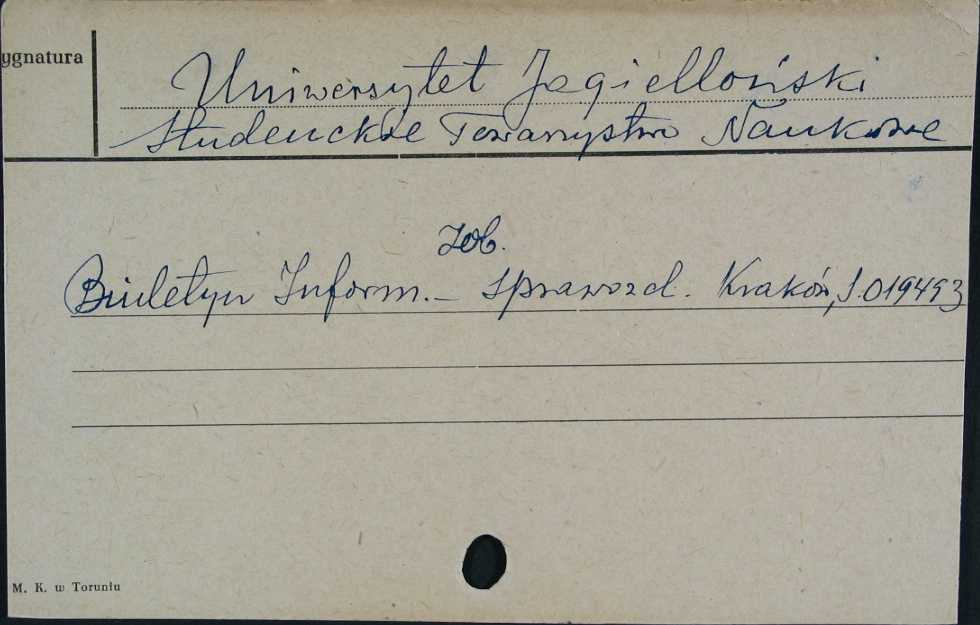 ygnatura
Uniwersytet Jagielloński
Studenckie Towarzystwo Naukowe
zob.
Biuletyn Inform.- Sprawozd. Kraków, S.019493
M. K. w Toruniu